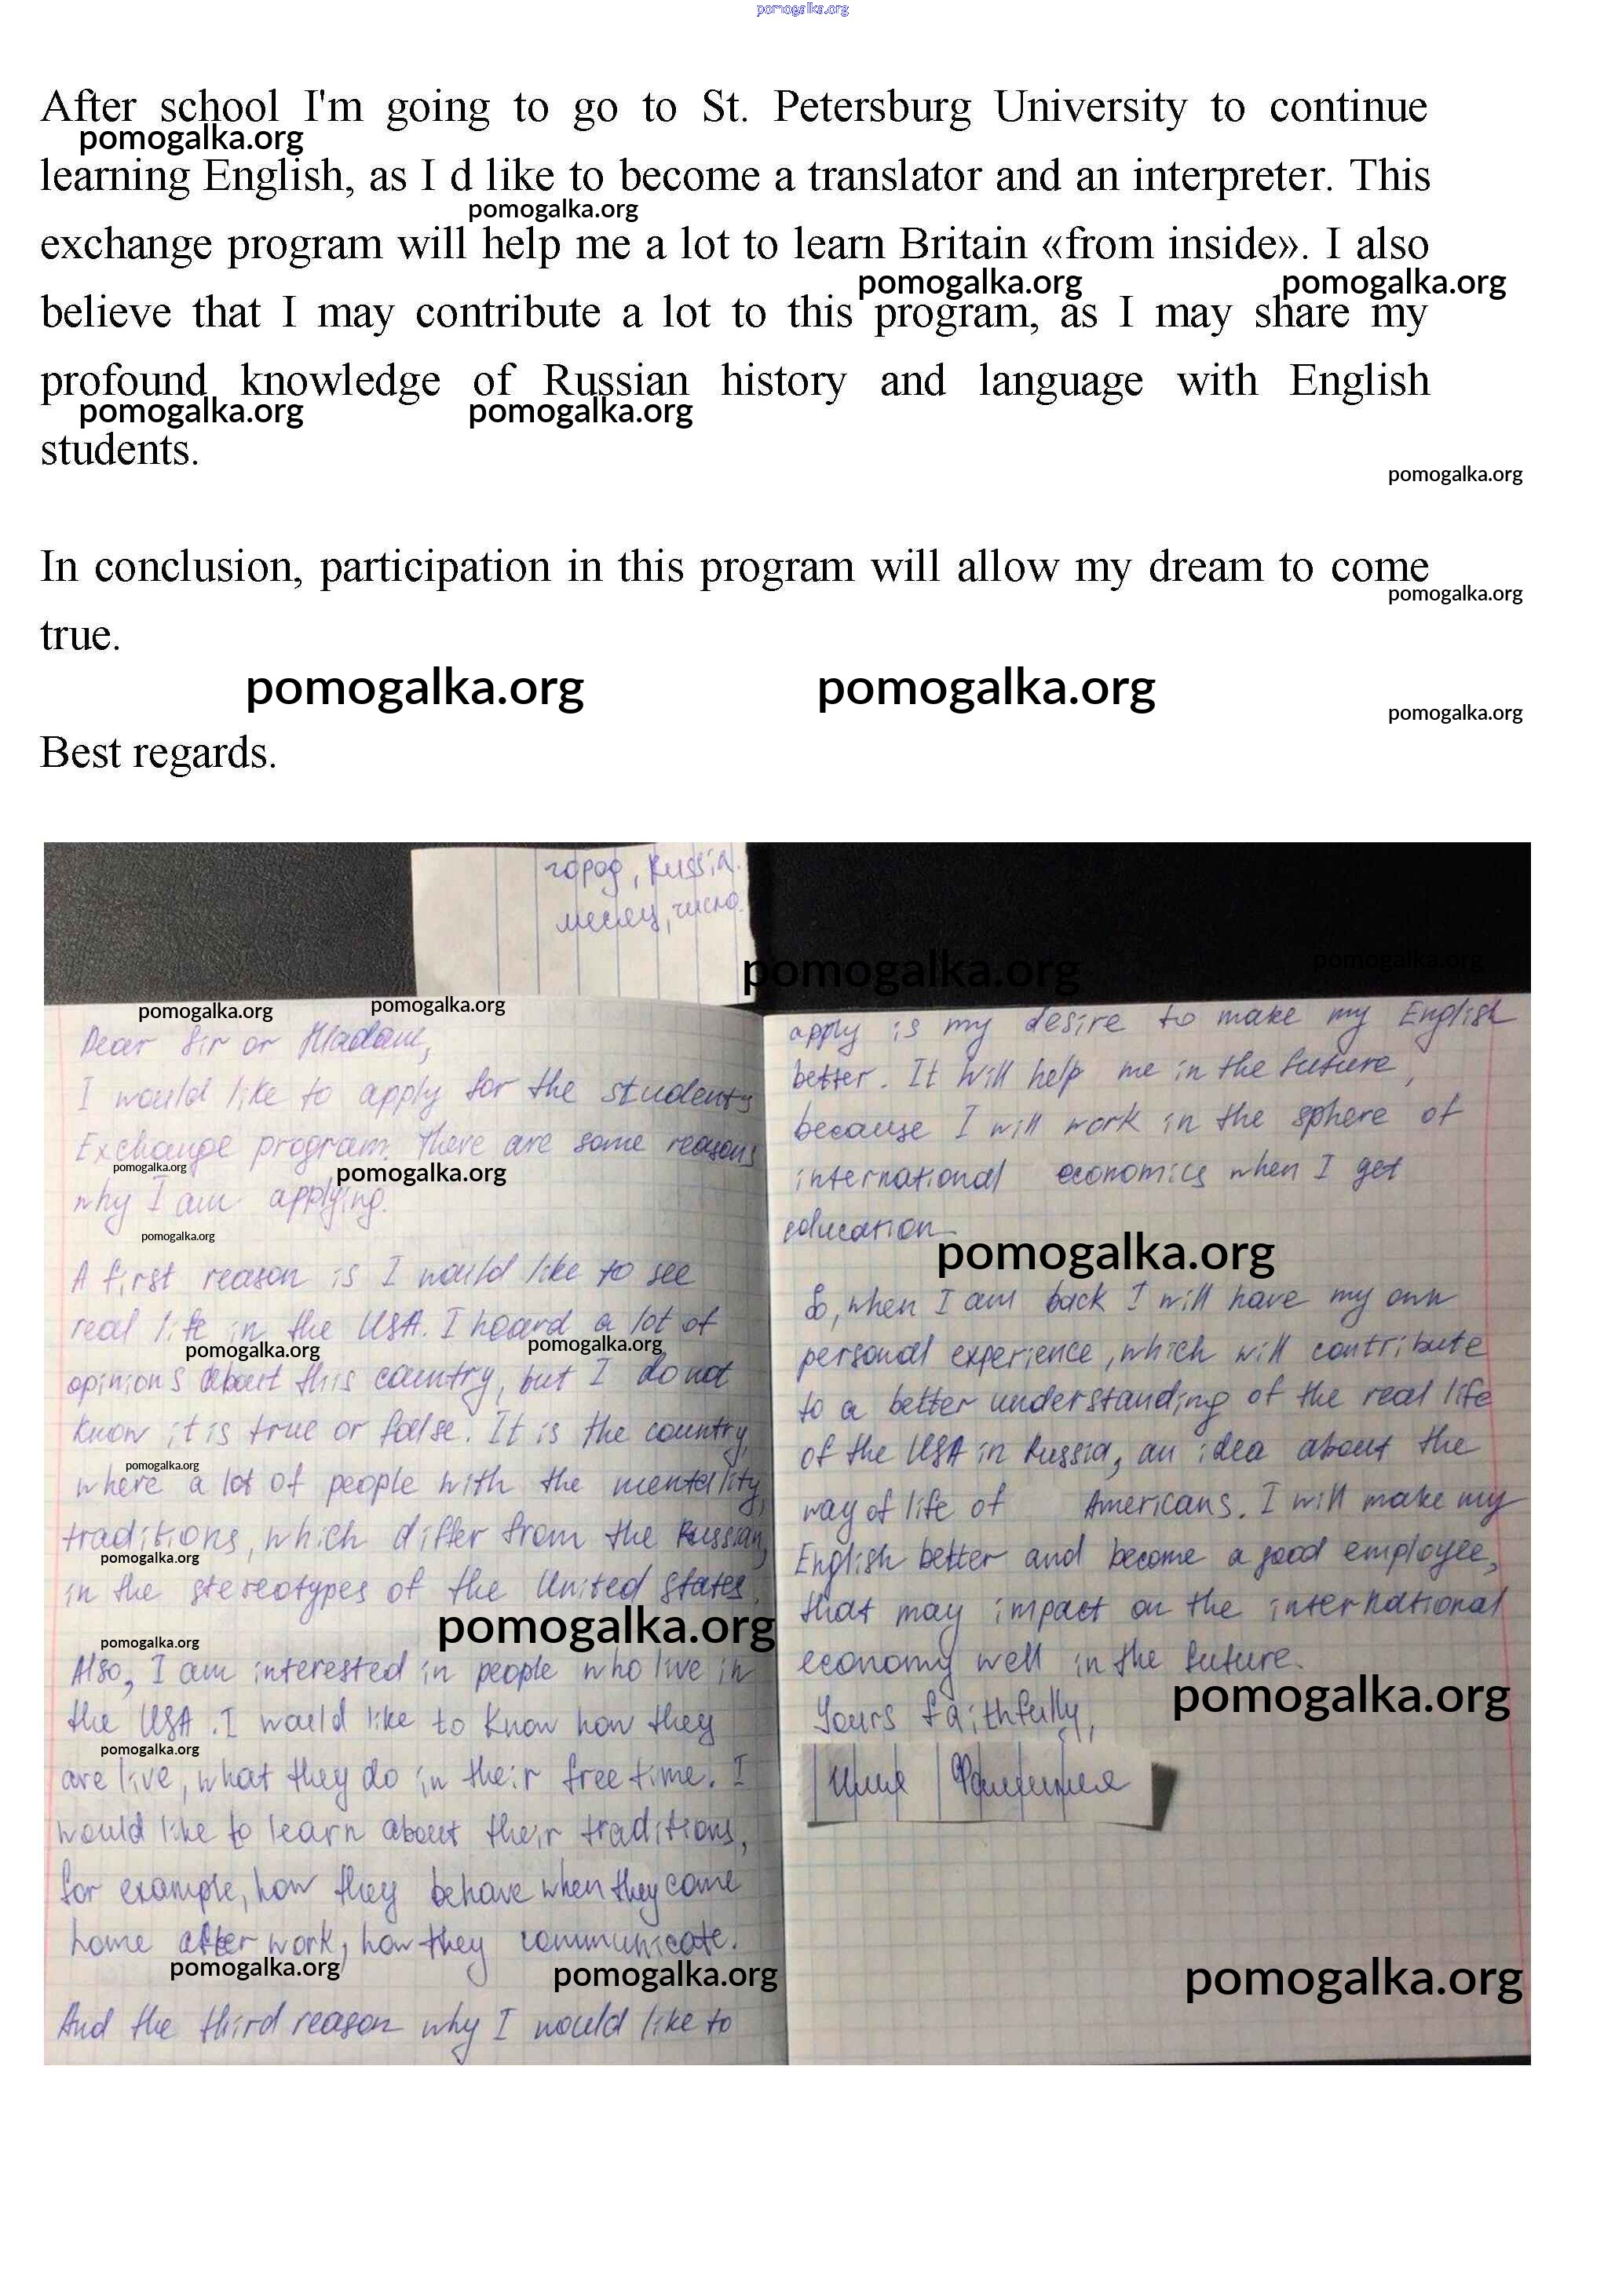 pomogalka.org
After school I'm going to go to St. Petersburg University to continue
pomogalka.org
learning English, as I d like to become a translator and an interpreter. This
pomogalka.org
exchange program will help me a lot to learn Britain «from inside». I also
pomogalka.org pomogalka.org
believe that I may contribute a lot to this program, as I may share my
profound knowledge of Russian history and language with English
pomogalka.org pomogalka.org
students.
pomogalka.org
In conclusion, participation in this program will allow my dream to come
pomogalka.org
true.
pomogalka.org pomogalka.org
pomogalka.org
Best regards.
город, Russia.
месяц, число.
pomogalka.org
pomogalka.org
pomogalka.org pomogalka.org
Dear Sir or Madam,
I would like to apply for the students
Exchange program. There are some reasons
pomogalka.org pomogalka.org
why I am applying.
pomogalka.org
A first reason is I would like to see
real life in the USA. I heard a lot of
pomogalka.org pomogalka.org
opinions about this country, but I do not
know it is true or false. It is the country,
pomogalka.org
where a lot of people with the mentality,
traditions, which differ from the Russian,
pomogalka.org
in the stereotypes of the United States.
pomogalka.org
pomogalka.org
Also, I am interested in people who live in
the USA. I would like to know how they
pomogalka.org
are live, what they do in their free time. I
would like to learn about their traditions,
for example, how they behave when they come
home after work, how they communicate.
pomogalka.org pomogalka.org
And the third reason why I would like to
apply is my desire to make my English
better. It will help me in the future,
because I will work in the sphere of
international economics when I get
education.
pomogalka.org
So, when I am back I will have my own
personal experience, which will contribute
to a better understanding of the real life
of the USA in Russia, an idea about the
way of life of Americans. I will make my
English better and become a good employee,
that may impact on the international
economy well in the future.
pomogalka.org
Yours faithfully,
Имя Фамилия
pomogalka.org